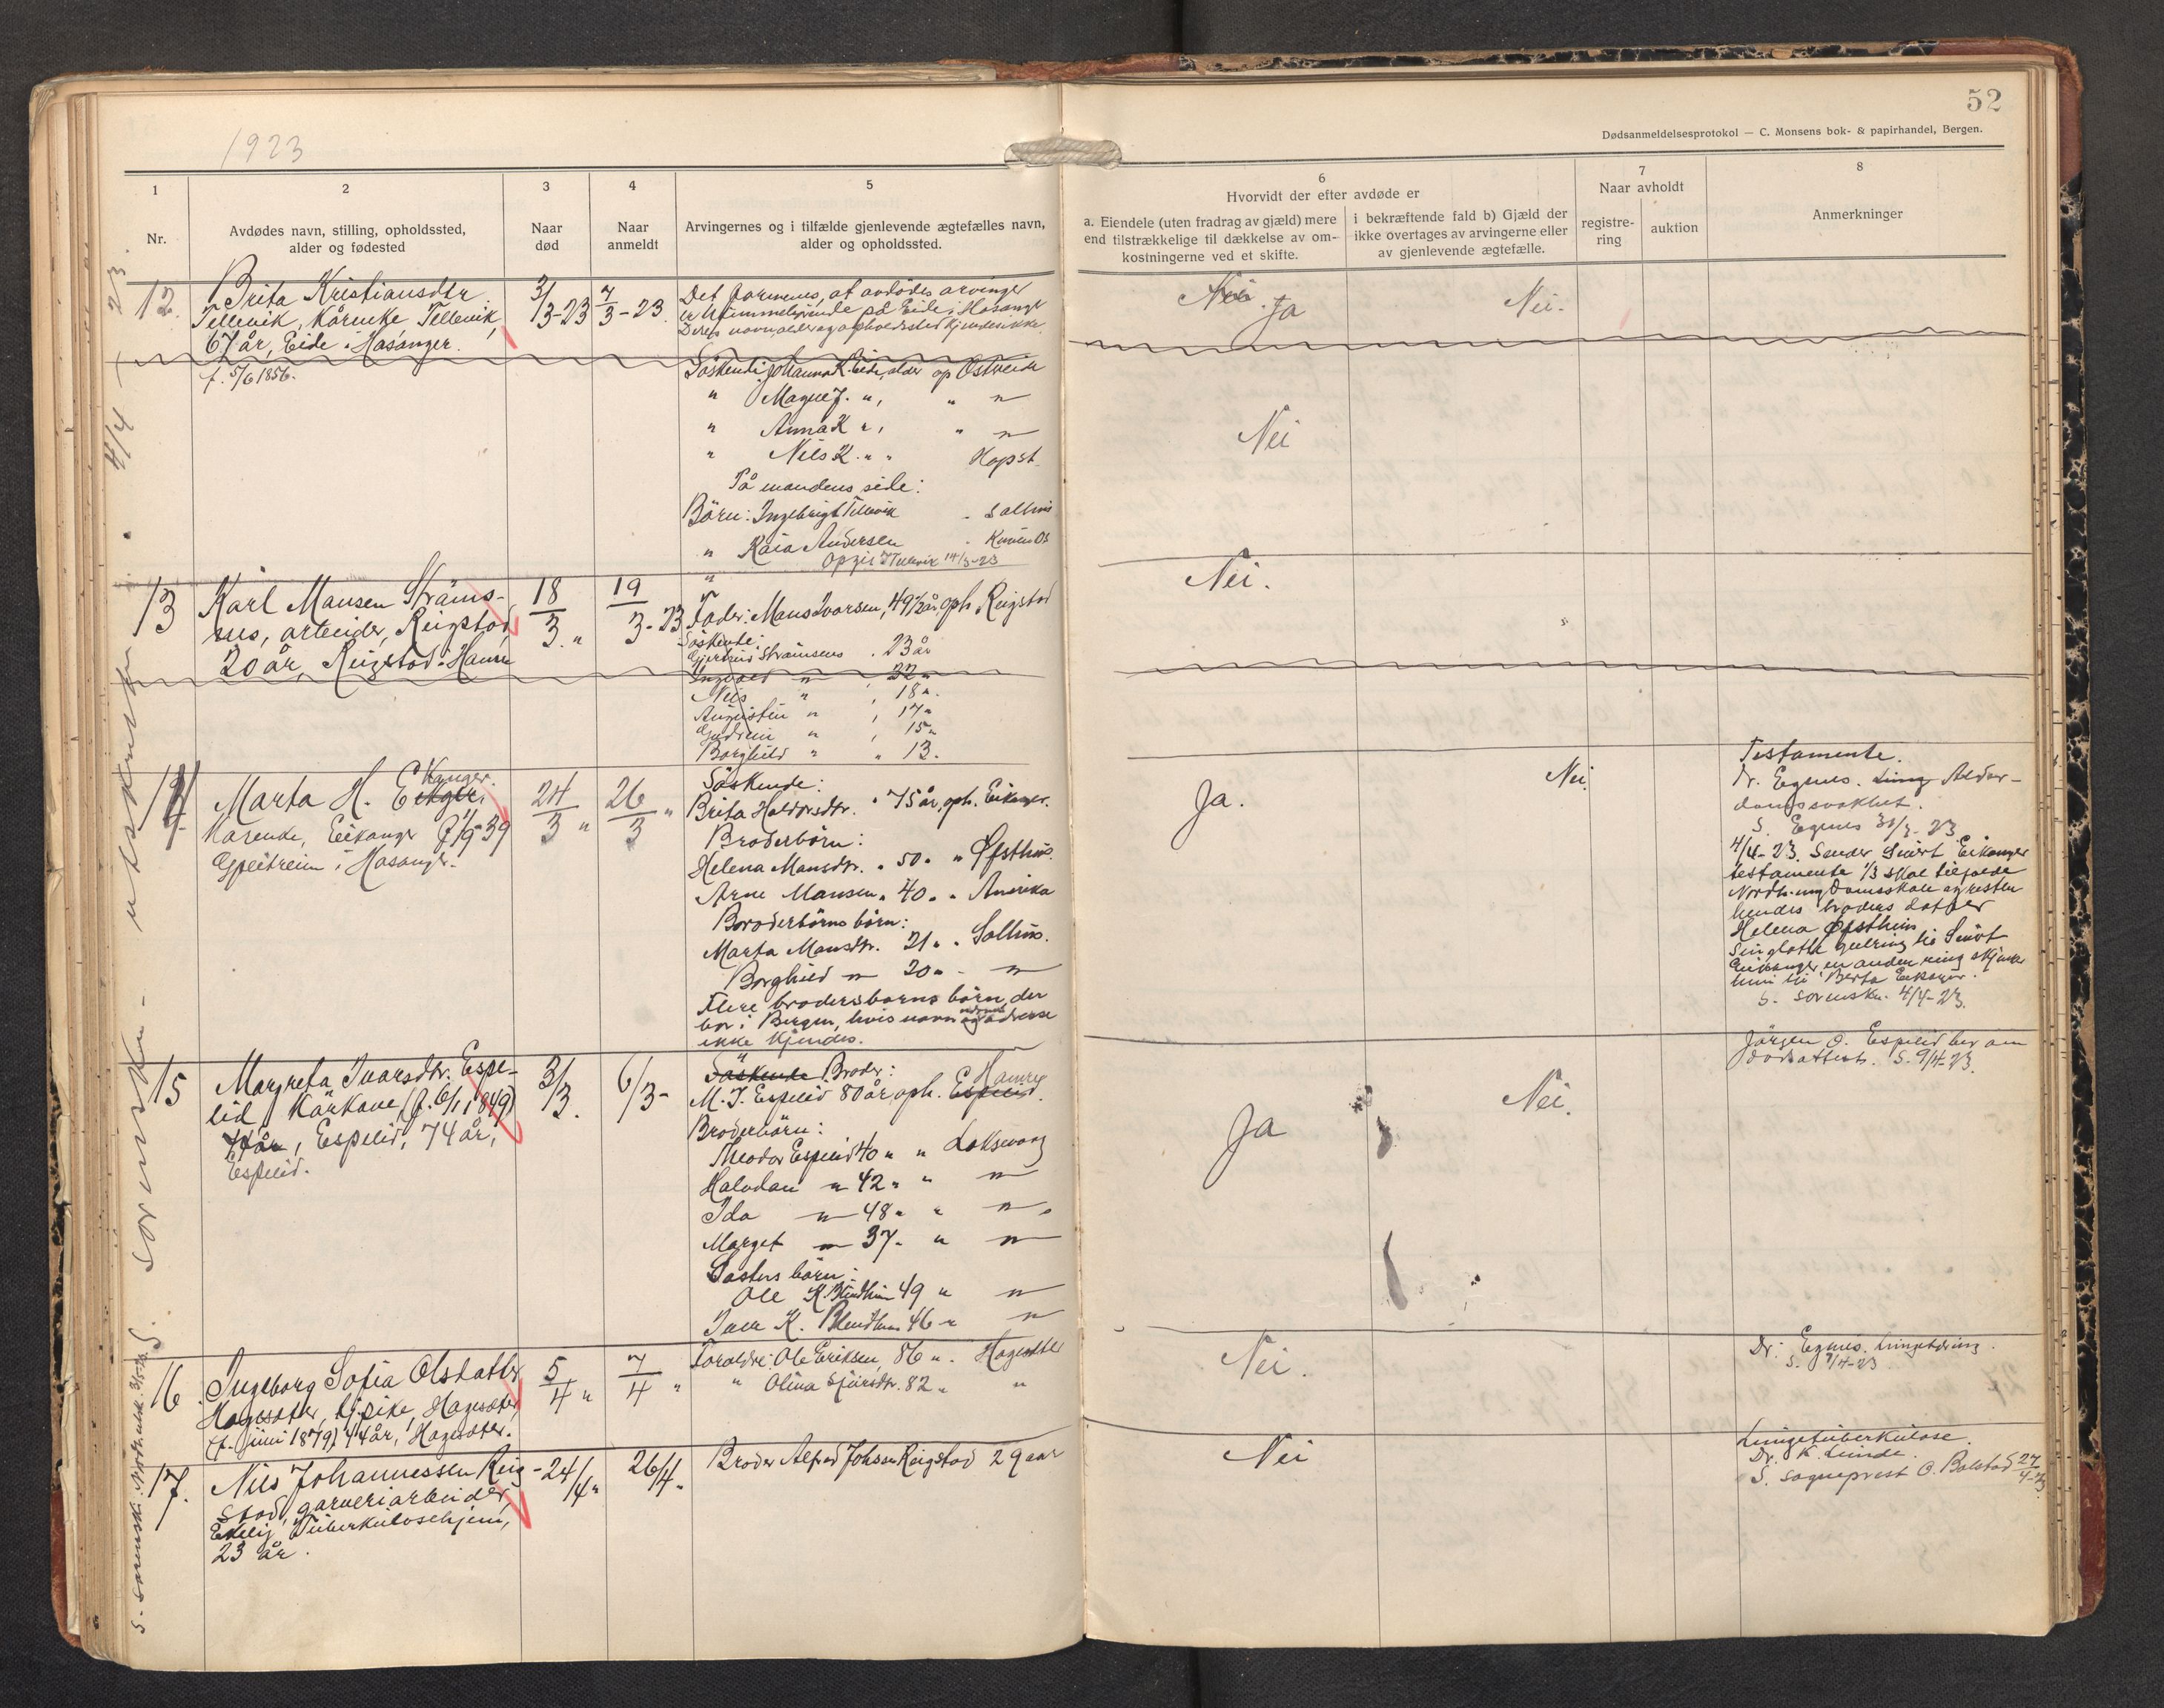 1923
52
Dødsanmeldelsesprotokol — C. Monsens bok- & papirhandel, Bergen.
1
2
3
4
5
6
7
8
Nr.
Avdødes navn, stilling, opholdssted,
alder og fødested
Naar
død
Naar
anmeldt
Arvingernes og i tilfælde gjenlevende ægtefælles navn,
alder og opholdssted.
Hvorvidt der efter avdøde er
a. Eiendele (uten fradrag av gjæld) mere
end tilstrækkelige til dækkelse av om-
kostningerne ved et skifte.
i bekræftende fald b) Gjæld der
ikke overtages av arvingerne eller
av gjenlevende ægtefælle.
Naar avholdt
registre-
ring
auktion
Anmerkninger
12.
Brita Kristiansdtr
Tellevik, kårenke, Tellevik,
67 år, Eide i Hosanger.
f. 5/6 1856.
3/3-23
7/3-23
Det formenes, at avdødes arvinger
er hjemmehørende på Eide i Hosanger
Deres navn, alder og opholdssted kjendes ikke.
Söskende: Johanna K. Eide, alder op Ostereide
" Magne J. ", " "
" Anna K ", " "
" Nils K. " " Hopst.
På mandens side:
Börn: Ingebrigt Tellevik
" Kaia Andersen
14/3-23
Nei. Ja
Nei.
Nei
13
Karl Mansen Ströms-
nes, arbeider, Reigstad,
20 år, Reigstad i Hamre
18/3 "
19/3-23
Fader: Mans Ivarsen, 49 1/2 år, oph Reigstad
Söskende:
Gjertrud Strömsnes . 23 år
Ingvald " , 22 "
Nils " , 18 "
Augustin " , 17 "
Gudrun " , 15 "
Borghild " " 13.
Nei.
14
Marta H. Eikanger,
Kårenke, Eikanger
Espetreim i Hosanger.
24/3 "
26/3 "
Söskende:
Brita Haldorsdtr. " 75 år, oph. Eikanger.
Broderbörn:
Helena Mansdtr. " 50 " " Øfsthus.
Arne Mansen " 40 " " Amerika
Broderbörns börn:
Marta Mansdtr. 21 " "
Borghild " 20 " "
Flere brodersbarns börn, der
bor i Bergen, hvis navn og adresse
ikke kjendes.
Ja.
Nei.
Testamente.
Dr. Egenes. Alder-
domssvakhet.
S. Egenes 31/3-23
4/4-23. Sender Sivert Eikanger
testamente 1/3 skal tilfalde
Nordh. ungdomsskole og resten
hendes broders datter
Helena Øfsthus
S. sorenskr. 4/4-23.
15
Margreta Ivarsdtr. Espe-
lid, Kårkone, (f. 6/1 1849)
74 år, Espelid, 74 år,
Espelid.
3/3.
6/3-
Söskende Broder:
M. I. Espelid 80 år oph. Espelid. Hamre
Broderbörn:
Theodor Espelid 40 " " Loksevaag
Halvdan " 42 " " "
Ida " 48 " " "
Marget " 37 " " "
Søsters börn:
Ole K. Blindheim 49 " "
Iver K. Blindheim 46 " "
Ja
Nei.
Jörgen O. Espelid ber om
dødsattest. S. 9/4-23.
16
Ingeborg Sofia Olsdatter
Hagesæter, tj. pike, Hagesæter,
(f. juni 1879) 44 år, Hagesæter.
5/4 "
7/4 "
Foreldre: Ole Eriksen, 86 " . Hagesæter
" Olina Sjursdtr. 82 " "
Nei.
Dr: Egenes. Lungebetændelse.
S. 7/4-23
17.
Nils Johannessen Reig-
stad, garveriarbeider,
Ekelig Tuberkulosehjem,
23 år.
24/4 "
26/4 "
Broder Alfred Johssen Reigstad 29 aar
Nei
Lungetuberkulose.
Dr. K. Lunde.
S. sogneprest O. Bolstad 27/4-23